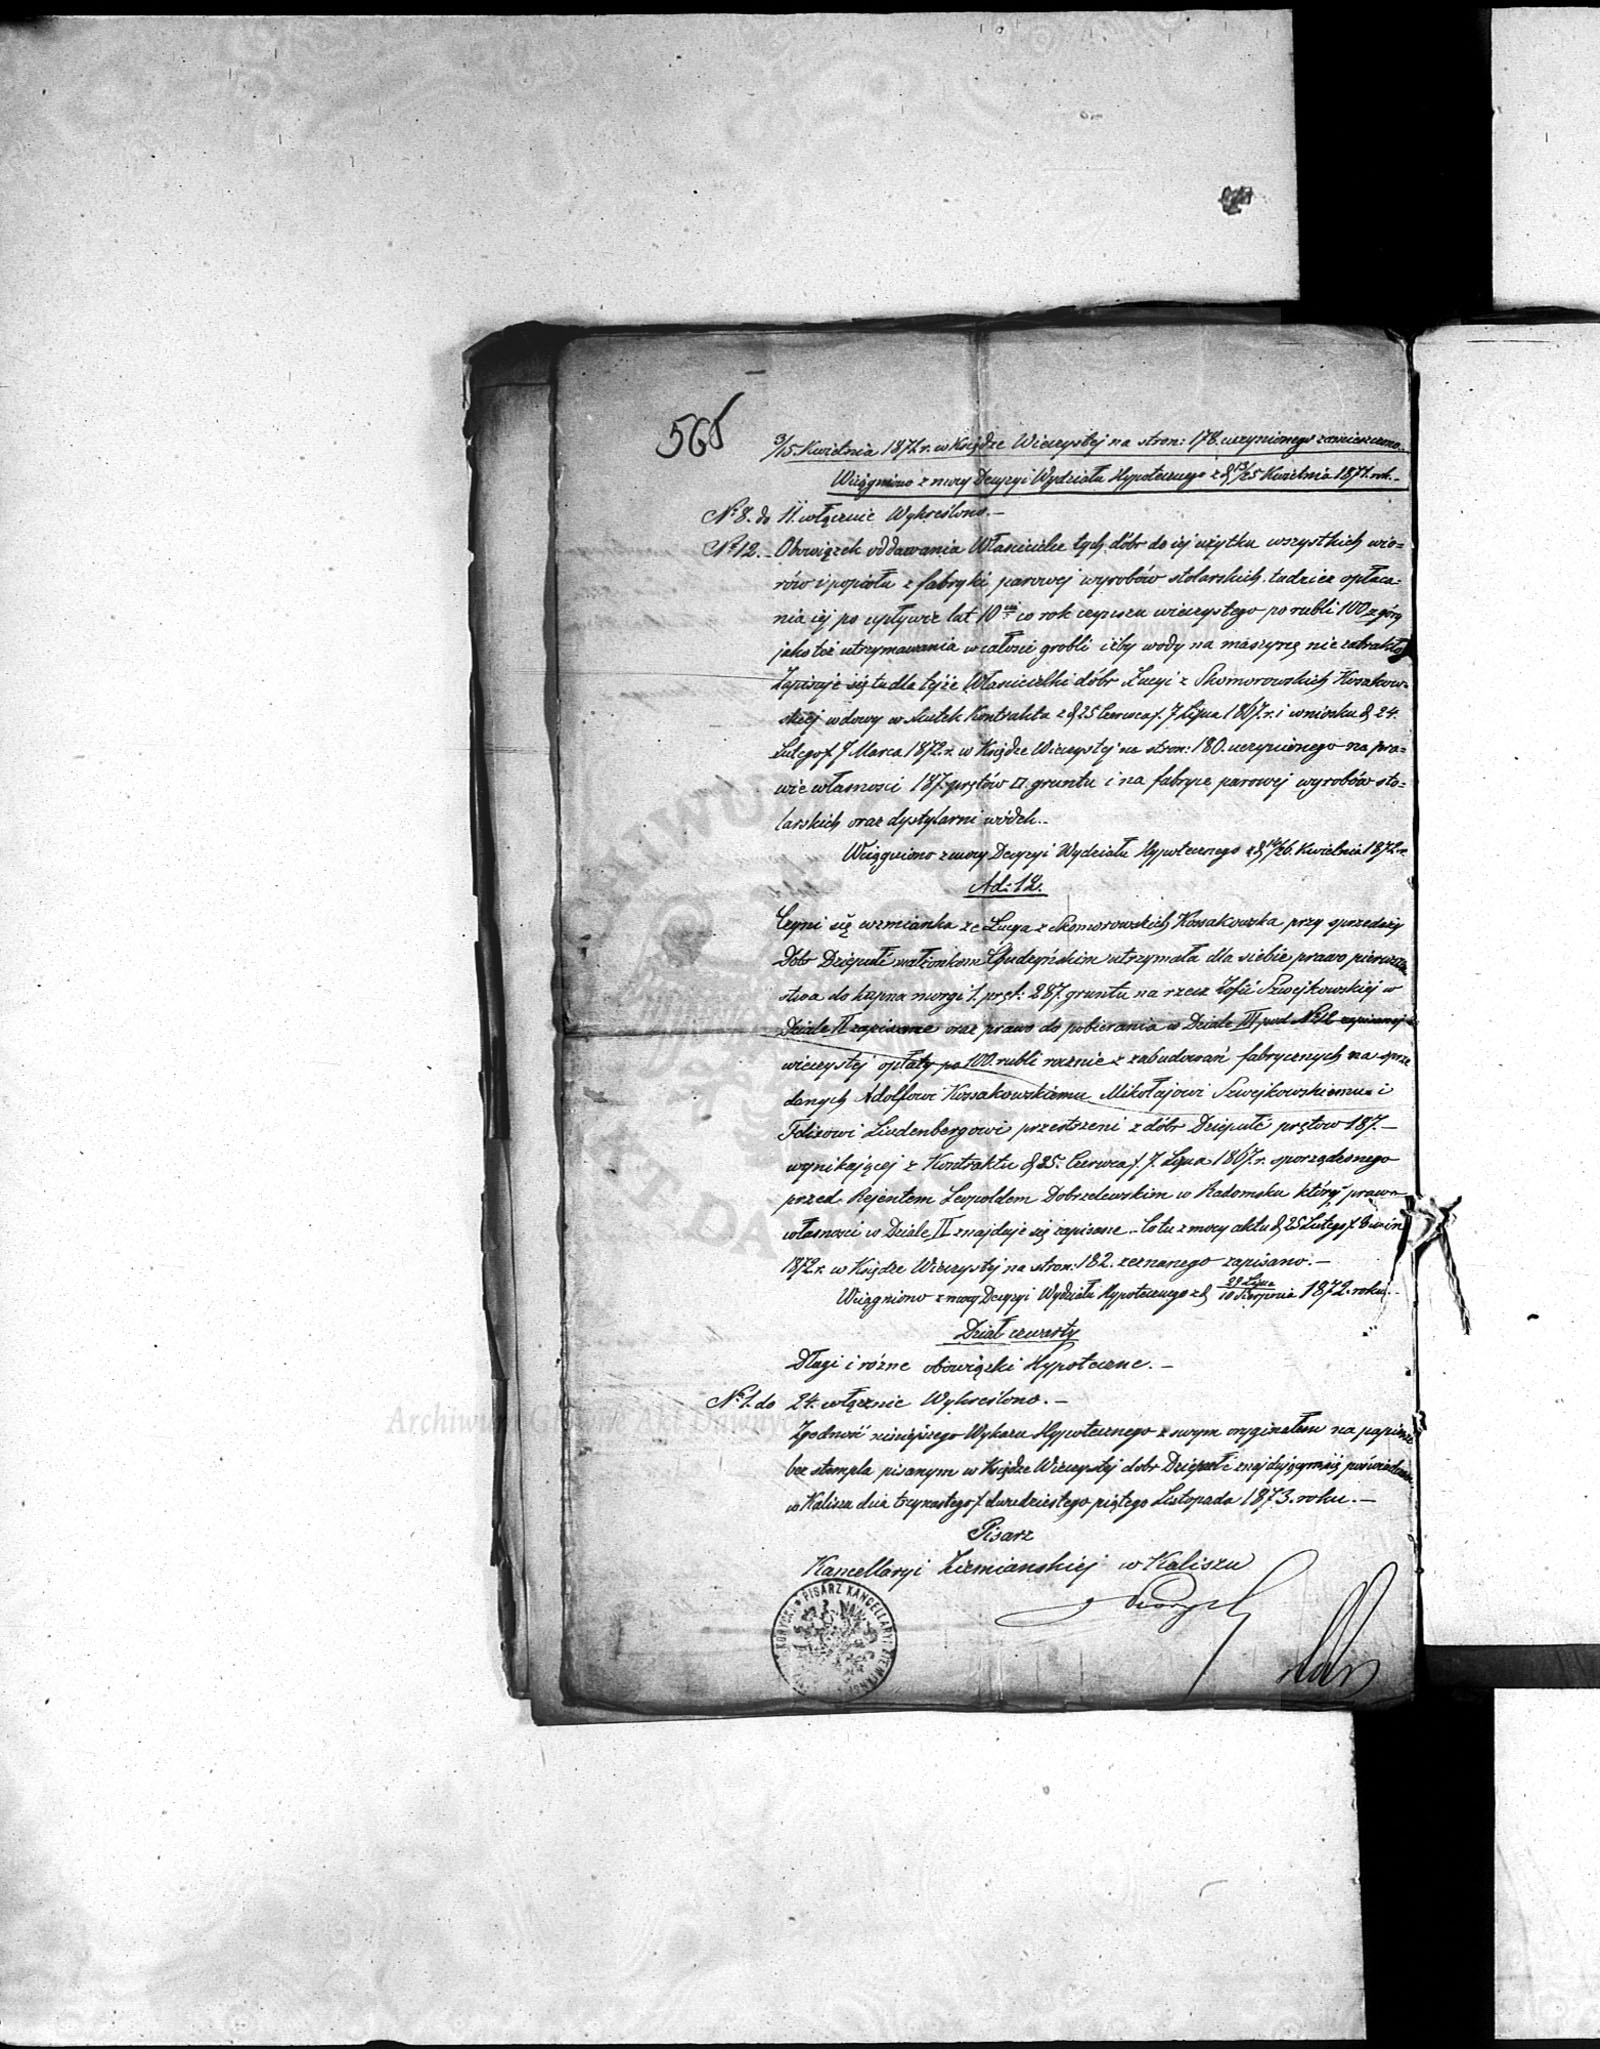 568
3/15 Kwietnia 1871 r. w Księdze Wieczystej na stron: 178. uczynionego zamieszczono.
Wciągniono z mocy Decyzyi Wydziału Hypotecznego z d 13/25 Kwietnia 1871. rk.
№ 8. do 11. włącznie Wykreślono. —
№ 12. Obowiązek oddawania Właścicielce tych dóbr do jej użytku wszystkich wió=
rów i popiołu z fabryki parowej wyrobów stolarskich, tudzież opłaca=
nia jej po upływie lat 10 co rok czynszu wieczystego po rubli 100 z góry
jako też utrzymawania w całości grobli iżby wody na maszynę nie zabrakło
Zapisuje się tu dla tejże Właścicielki dóbr Łucyi z Skomorowskich Kossakow=
skiej wdowy w skutek Kontraktu z d 25 Czerwca/. 7 Lipca 1867. r. i wniosku d 24.
Lutego/. 7 Marca 1872. r. w Księdze Wieczystej na stron: 180. uczynionego na pra=
wie własności 187. prętów □. gruntu i na fabryce parowej wyrobów sto=
larskich oraz dystylarni wódek..
Wciągniono z mocy Decyzyi Wydziału Hypotecznego z d 14/26. Kwietnia 1872 r.
Ad: 12.
Czyni się wzmianka że Łucya z Skomorowskich Kossakowska przy sprzedaży
Dóbr Dziepułć małżonkom utrzymała dla siebie prawo pierwszeń
stwa do kupna morgi 1. pręt: 287. gruntu na rzecz Zofii Szwejkowskiej w
Dziale II zapisane oraz prawo do pobierania w Dziale III pod № 12 zapisanej
wieczystej opłaty po 100. rubli rocznie z zabudowań fabrycznych na sprze
danych Adolfowi Kossakowskiemu Mikołajowi Szwejkowskiemu i
Felixowi Lindenbergowi przestrzeni z dóbr Dziepułć prętow 187. —
wynikającej z Kontraktu d 25. Czerwca/. 7. Lipca 1867. r. sporządzonego
przed Rejentem Leopoldem Dobrzelewskim w Radomsku który prawo
własności w Dziale II znajduje się zapisane.. Co tu z mocy aktu d 25 Lutego/.
1872 r. w Księdze Wieczystej na stron: 182. zeznanego zapisano. —
Wciągniono z mocy Decyzyi Wydziału Hypotecznego z d 29 Lipca/10 Sierpnia 1872. roku..
Dział czwarty
Długi i różne obowiązki Hypoteczne. —
№ 1. do 24. włącznie Wykreślono. —
Zgodność niniejszego Wykazu Hypotecznego z swym oryginałem na papierze
bez stempla pisanym w Księdze Wieczystej dobr Dziepułć znajdującym się poświadcza
w Kaliszu dnia trzynastego/. dwudziestego piątego Listopada 1873. roku. —
Pisarz
Kancellaryi Ziemianskiej w Kaliszu
PISARZ KANCELLARYI ZIEMIAŃSK
Archiwum Główne Akt Dawnych